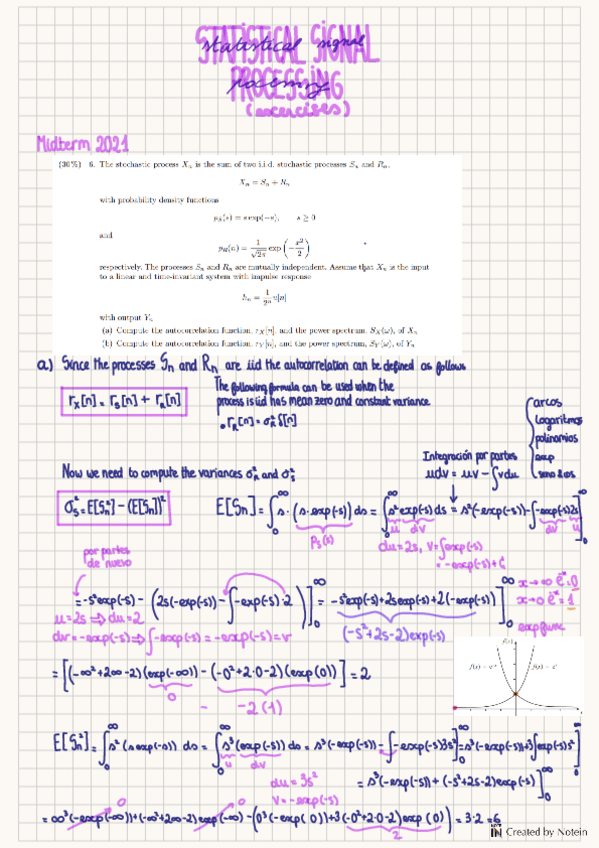 STATISTICAL SIGNAL
statistical signal
PROCESSING
(exercises)
Midterm 2021
(30%) 6. The stochastic process Xₙ is the sum of two i.i.d. stochastic processes Sₙ and Rₙ,
Xₙ = Sₙ + Rₙ
with probability density functions
p_S(s) = s exp(−s), s ≥ 0
and
p_R(n) = 1/√2π exp(−x²/2)
respectively. The processes Sₙ and Rₙ are mutually independent. Assume that Xₙ is the input
to a linear and time-invariant system with impulse response
hₙ = 1/2ⁿ u[n]
with output Yₙ
(a) Compute the autocorrelation function, r_X[n], and the power spectrum, S_X(ω), of Xₙ
(b) Compute the autocorrelation function, r_Y[n], and the power spectrum, S_Y(ω), of Yₙ
a) Since the processes Sₙ and Rₙ are iid the autocorrelation can be defined as follows
r_X[n] = r_S[n] + r_R[n]
The following formula can be used when the
process is iid has mean zero and constant variance.
• r_R[n] = σ²_R δ[n]
arcos
logaritmos
polinomios
exp
seno o cos
Integración por partes
udv = uv − ∫vdu
Now we need to compute the variances σ²_R and σ²_S
σ²_S = E[Sₙ²] − (E[Sₙ])²
E[Sₙ] = ∫₀^∞ s·(s·exp(-s)) ds = ∫₀^∞ s² exp(-s) ds = s²(-exp(-s)) − ∫-exp(-s)2s]₀^∞
P_S(s)
u dv
dv u
du = 2s, v = ∫exp(-s)
= -exp(-s)+C
por partes
de nuevo
= -s²exp(-s) − (2s(-exp(-s)) − ∫-exp(-s)·2)]₀^∞ = -s²exp(-s)+2sexp(-s)+2(-exp(-s))]₀^∞
x→∞ e⁻ˣ=0
x→0 e⁻ˣ=1
exp func
u = 2s ⇒ du = 2
dv = -exp(-s) ⇒ ∫-exp(-s) = -exp(-s) = v
(-s²+2s-2)exp(-s)
= [(-∞²+2∞-2)(exp(-∞)) − (-0²+2·0-2)(exp(0))] = 2
0
− -2(1)
E[Sₙ²] = ∫₀^∞ s²(s exp(-s)) ds = ∫₀^∞ s³(exp(-s)) ds = s³(-exp(-s)) − ∫-exp(-s)3s²]₀^∞ = s³(-exp(-s))+3∫exp(-s)s²]₀^∞
u dv
du = 3s²
v = -exp(-s)
= s³(-exp(-s)) + (-s²+2s-2)exp(-s)]₀^∞
= ∞³(-exp(-∞))+(-∞²+2∞-2)exp(-∞) − (0³(-exp(0))+3(-0²+2·0-2)exp(0)) = 3·2 = 6
0
0
2
Created by Notein